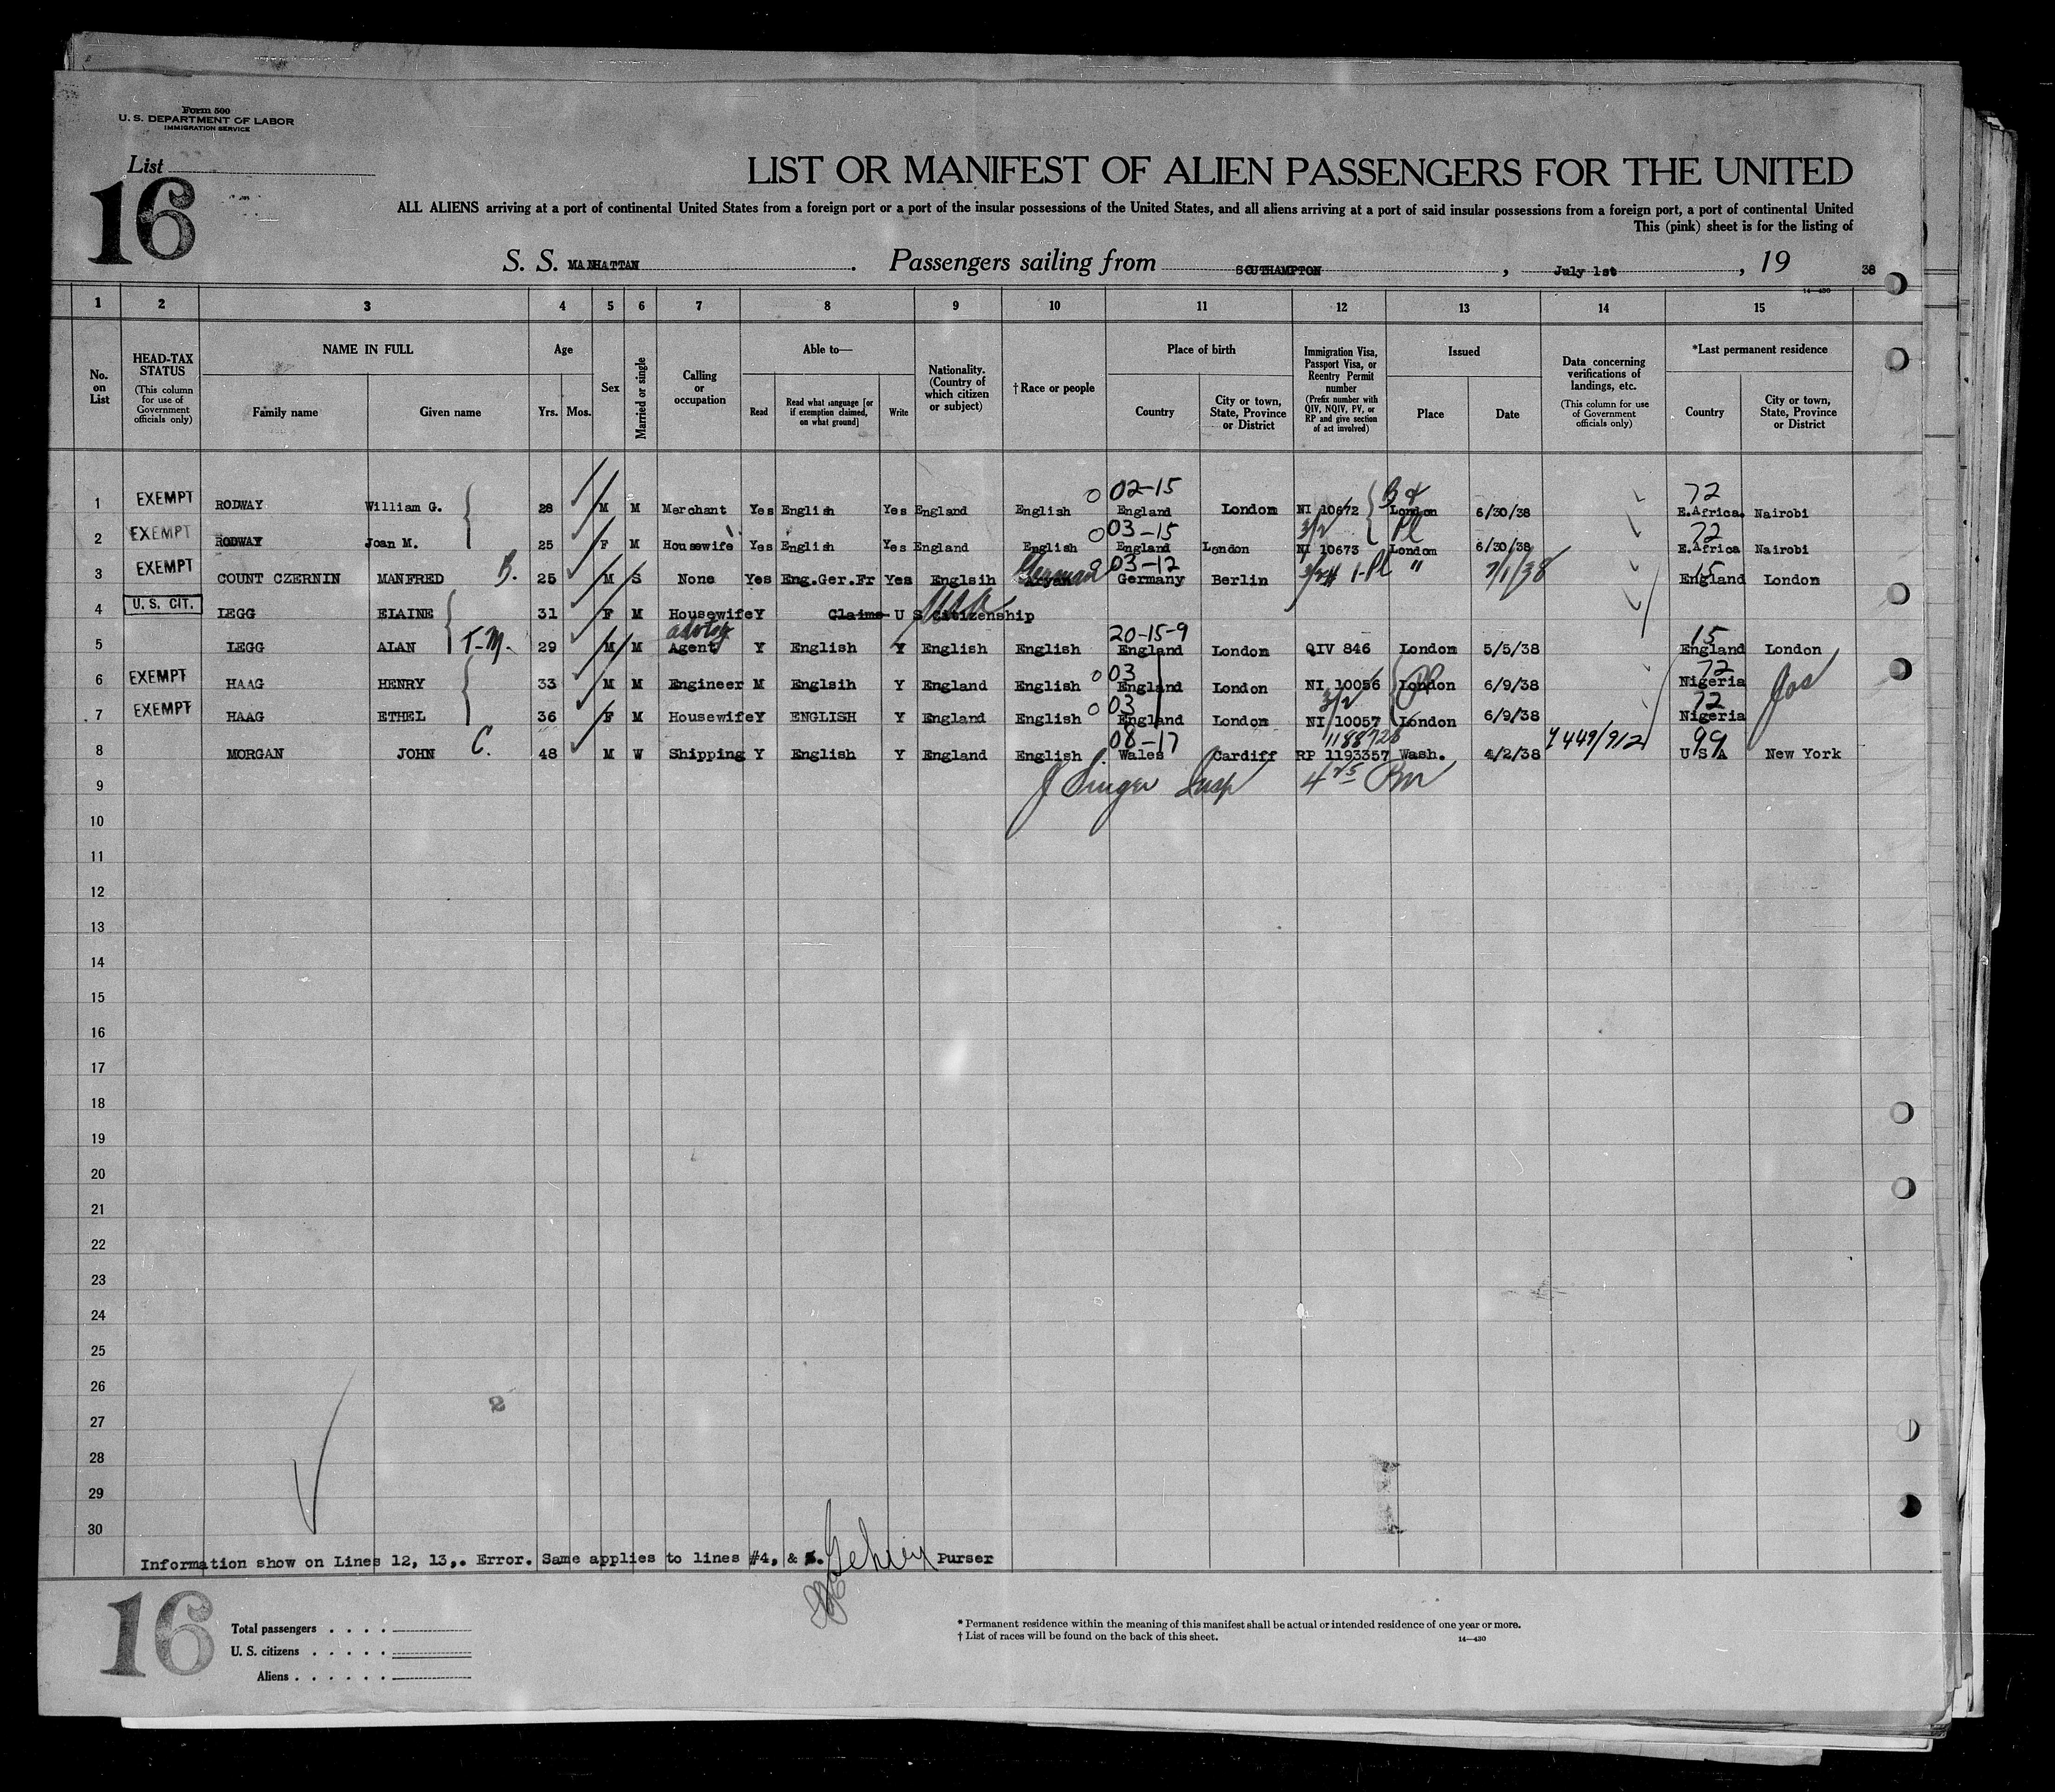 Form 500
U. S. DEPARTMENT OF LABOR
IMMIGRATION SERVICE
List
16
LIST OR MANIFEST OF ALIEN PASSENGERS FOR THE UNITED
ALL ALIENS arriving at a port of continental United States from a foreign port or a port of the insular possessions of the United States, and all aliens arriving at a port of said insular possessions from a foreign port, a port of continental United
This (pink) sheet is for the listing of
S. S. MANHATTAN . Passengers sailing from SOUTHAMPTON , July 1st , 19 38
14—430
1 2 3 4 5 6 7 8 9 10 11 12 13 14 15
No. on List
HEAD-TAX STATUS (This column for use of Government officials only)
NAME IN FULL
Family name Given name
Age
Yrs. Mos.
Sex
Married or single
Calling or occupation
Able to—
Read
Read what language [or if exemption claimed, on what ground]
Write
Nationality. (Country of which citizen or subject)
† Race or people
Place of birth
Country
City or town, State, Province or District
Immigration Visa, Passport Visa, or Reentry Permit number (Prefix number with QIV, NQIV, PV, or RP and give section of act involved)
Issued
Place Date
Data concerning verifications of landings, etc. (This column for use of Government officials only)
*Last permanent residence
Country
City or town, State, Province or District
02-15 72
1 EXEMPT RODWAY William G. 28 M M Merchant Yes English Yes England English England London NI 10672 London 6/30/38 E.Africa. Nairobi
03-15 3/2 Pl 72
2 EXEMPT RODWAY Joan M. 25 F M Housewife Yes English Yes England English England London NI 10673 London 6/30/38 E.Africa Nairobi
German 03-12 15
3 EXEMPT COUNT CZERNIN MANFRED B. 25 M S None Yes Eng.Ger.Fr Yes Englsih Germany Berlin 1-Pl " 7/1/38 England London
USA
4 U. S. CIT. LEGG ELAINE 31 F M Housewife Y Claims U S Citizenship
advtsg 20-15-9 15
5 LEGG ALAN T-M. 29 M M Agent Y English Y English English England London QIV 846 London 5/5/38 England London
03 72
6 EXEMPT HAAG HENRY 33 M M Engineer M Englsih Y England English England London NI 10056 London 6/9/38 Nigeria Jos
03 3/2 72
7 EXEMPT HAAG ETHEL 36 F M Housewife Y ENGLISH Y England English England London NI 10057 London 6/9/38 Nigeria
08-17 1188726 99
8 MORGAN JOHN C. 48 M W Shipping Y English Y England English Wales Cardiff RP 1193357 Wash. 4/2/38 449/912 U S A New York
9 J Singer Insp
10
11
12
13
14
15
16
17
18
19
20
21
22
23
24
25
26
2
27
28
29
30
Information show on Lines 12, 13,. Error. Same applies to lines #4, & 5. Purser
16
Total passengers . . . .
U. S. citizens . . . . .
Aliens . . . . . .
* Permanent residence within the meaning of this manifest shall be actual or intended residence of one year or more.
† List of races will be found on the back of this sheet.
14—430